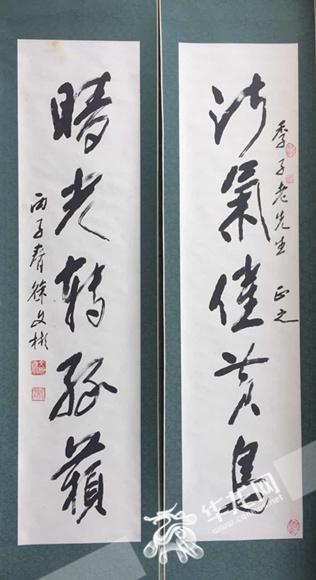 季子老先生 正之
淑氣催黄鳥
晴光轉綠蘋
丙子春徐文彬
华龙网